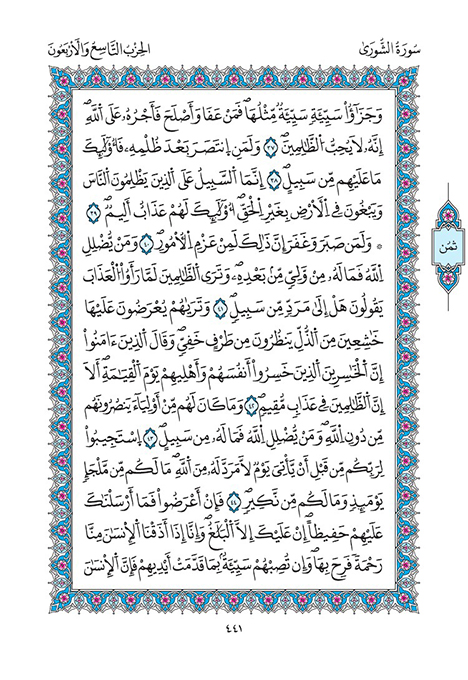 سُورَةُ الشُّورَىٰ
الحِزْبُ التَّاسِعُ وَالْأَرْبَعُونَ
وَجَزَٰٓؤُاْ سَيِّئَةٖ سَيِّئَةٞ مِّثْلُهَاۖ فَمَنْ عَفَا وَأَصْلَحَ فَأَجْرُهُۥ عَلَى ٱللَّهِۖ
إِنَّهُۥ لَا يُحِبُّ ٱلظَّٰلِمِينَۖ ٣٧ وَلَمَنِ ٱنتَصَرَ بَعْدَ ظُلْمِهِۦ فَأُوْلَٰٓئِكَ
مَا عَلَيْهِم مِّن سَبِيلٍۖ ٣٨ إِنَّمَا ٱلسَّبِيلُ عَلَى ٱلَّذِينَ يَظْلِمُونَ ٱلنَّاسَ
وَيَبْغُونَ فِي ٱلْأَرْضِ بِغَيْرِ ٱلْحَقِّۖ أُوْلَٰٓئِكَ لَهُمْ عَذَابٌ أَلِيمٞۖ ٣٩
* وَلَمَن صَبَرَ وَغَفَرَ إِنَّ ذَٰلِكَ لَمِنْ عَزْمِ ٱلْأُمُورِۖ ٤٠ وَمَنْ يُّضْلِلِ
ٱللَّهُ فَمَا لَهُۥ مِنْ وَّلِيّٖ مِّنۢ بَعْدِهِۦۖ وَتَرَى ٱلظَّٰلِمِينَ لَمَّا رَأَوُاْ ٱلْعَذَابَ
يَقُولُونَ هَلْ إِلَىٰ مَرَدّٖ مِّن سَبِيلٖۖ ٤١ وَتَرَىٰهُمْ يُعْرَضُونَ عَلَيْهَا
خَٰشِعِينَ مِنَ ٱلذُّلِّ يَنظُرُونَ مِن طَرْفٍ خَفِيّٖۖ وَقَالَ ٱلَّذِينَ ءَامَنُواْ
إِنَّ ٱلْخَٰسِرِينَ ٱلَّذِينَ خَسِرُوٓاْ أَنفُسَهُمْ وَأَهْلِيهِمْ يَوْمَ ٱلْقِيَٰمَةِۖ أَلَآ
إِنَّ ٱلظَّٰلِمِينَ فِي عَذَابٖ مُّقِيمٖۖ ٤٢ وَمَا كَانَ لَهُم مِّنْ أَوْلِيَآءَ يَنصُرُونَهُم
مِّن دُونِ ٱللَّهِۖ وَمَنْ يُّضْلِلِ ٱللَّهُ فَمَا لَهُۥ مِن سَبِيلٍۖ ٤٣ ٱسْتَجِيبُواْ
لِرَبِّكُم مِّن قَبْلِ أَنْ يَّأْتِيَ يَوْمٞ لَّا مَرَدَّ لَهُۥ مِنَ ٱللَّهِۖ مَا لَكُم مِّن مَّلْجَإٖ
يَوْمَئِذٖ وَمَا لَكُم مِّن نَّكِيرٖۖ ٤٤ فَإِنْ أَعْرَضُواْ فَمَآ أَرْسَلْنَٰكَ
عَلَيْهِمْ حَفِيظًاۖ إِنْ عَلَيْكَ إِلَّا ٱلْبَلَٰغُۖ وَإِنَّآ إِذَآ أَذَقْنَا ٱلْإِنسَٰنَ مِنَّا
رَحْمَةٗ فَرِحَ بِهَاۖ وَإِن تُصِبْهُمْ سَيِّئَةُۢ بِمَا قَدَّمَتْ أَيْدِيهِمْ فَإِنَّ ٱلْإِنسَٰنَ
ثُمُن
٤٤١